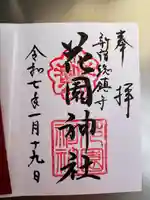 奉拝
新宿総鎮守
花園神社
令和七年一月十九日